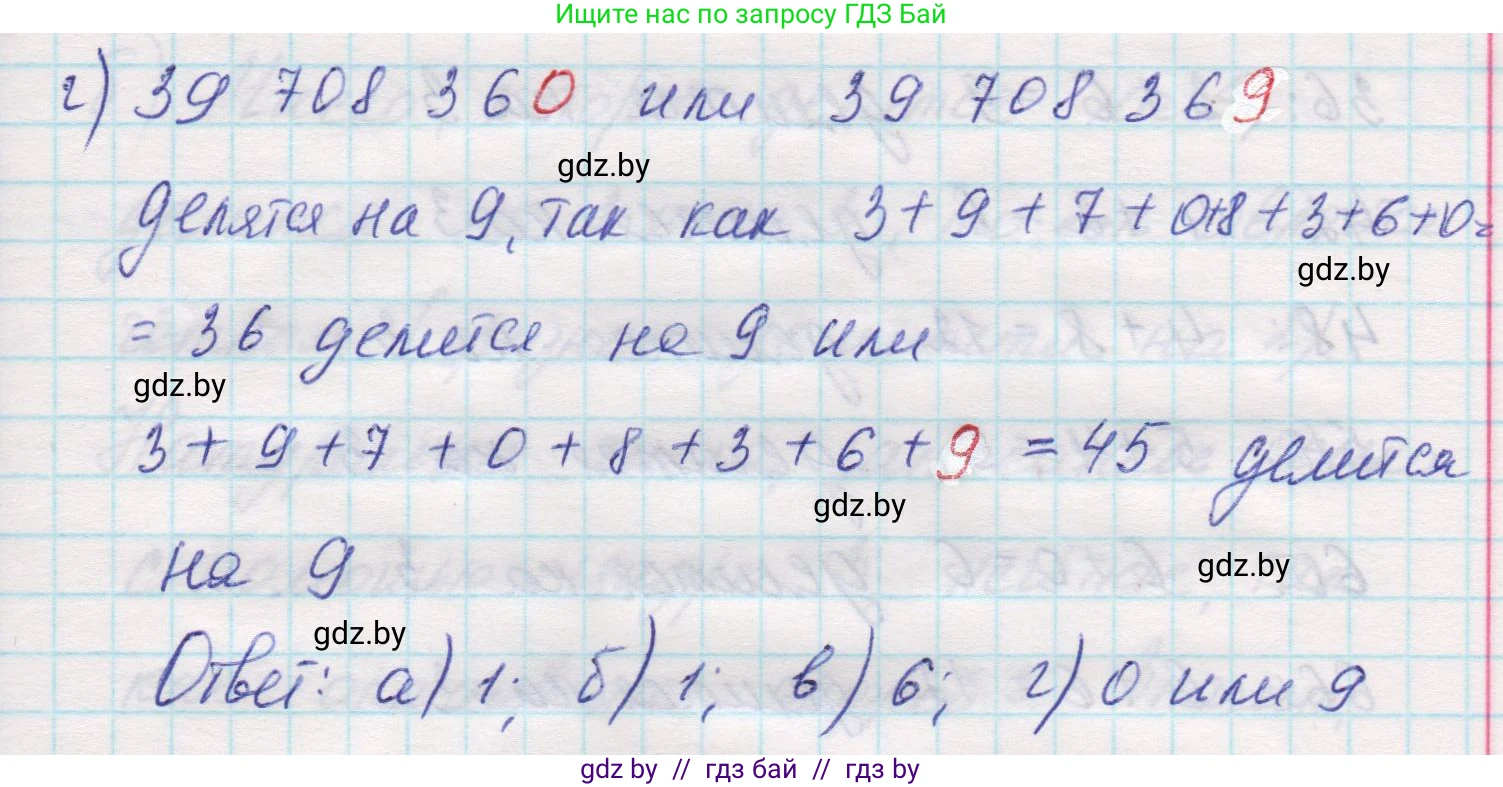 Ищите нас по запросу ГДЗ Бай
г) 39 708 360 или 39 708 369
gdz.by
делятся на 9, так как 3 + 9 + 7 + 0 + 8 + 3 + 6 + 0 =
gdz.by
= 36 делится на 9 или
gdz.by
3 + 9 + 7 + 0 + 8 + 3 + 6 + 9 = 45 делится
gdz.by
на 9
gdz.by
gdz.by
Ответ: а) 1; б) 1; в) 6; г) 0 или 9
gdz by // гдз бай // гдз by